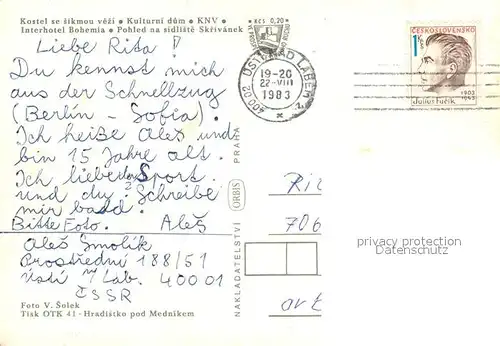 Kostel se šikmou věží • Kulturní dům • KNV •
Interhotel Bohemia • Pohled na sídliště Skřivánek
Liebe Rita!
Du kennst mich
aus der Schnellzug
(Berlin - Sofia).
Ich heiße Aleš und
bin 15 Jahre alt.
Ich liebe Sport
und du? Schreibe
mir bald.
Bitte Foto. Aleš
Aleš Smolík
Prostřední 188/51
Ústí n/Lab. 400 01
ČSSR
Foto V. Šolek
Tisk OTK 41 - Hradištko pod Medníkem
NAKLADATELSTVÍ ORBIS PRAHA
KČS 0,20
400 02 ÚSTÍ NAD LABEM 1
19-20
22-VIII
1983
x
1 Kčs
ČESKOSLOVENSKO
Julius Fučík
1903
1943
706
privacy protection
privacy protection